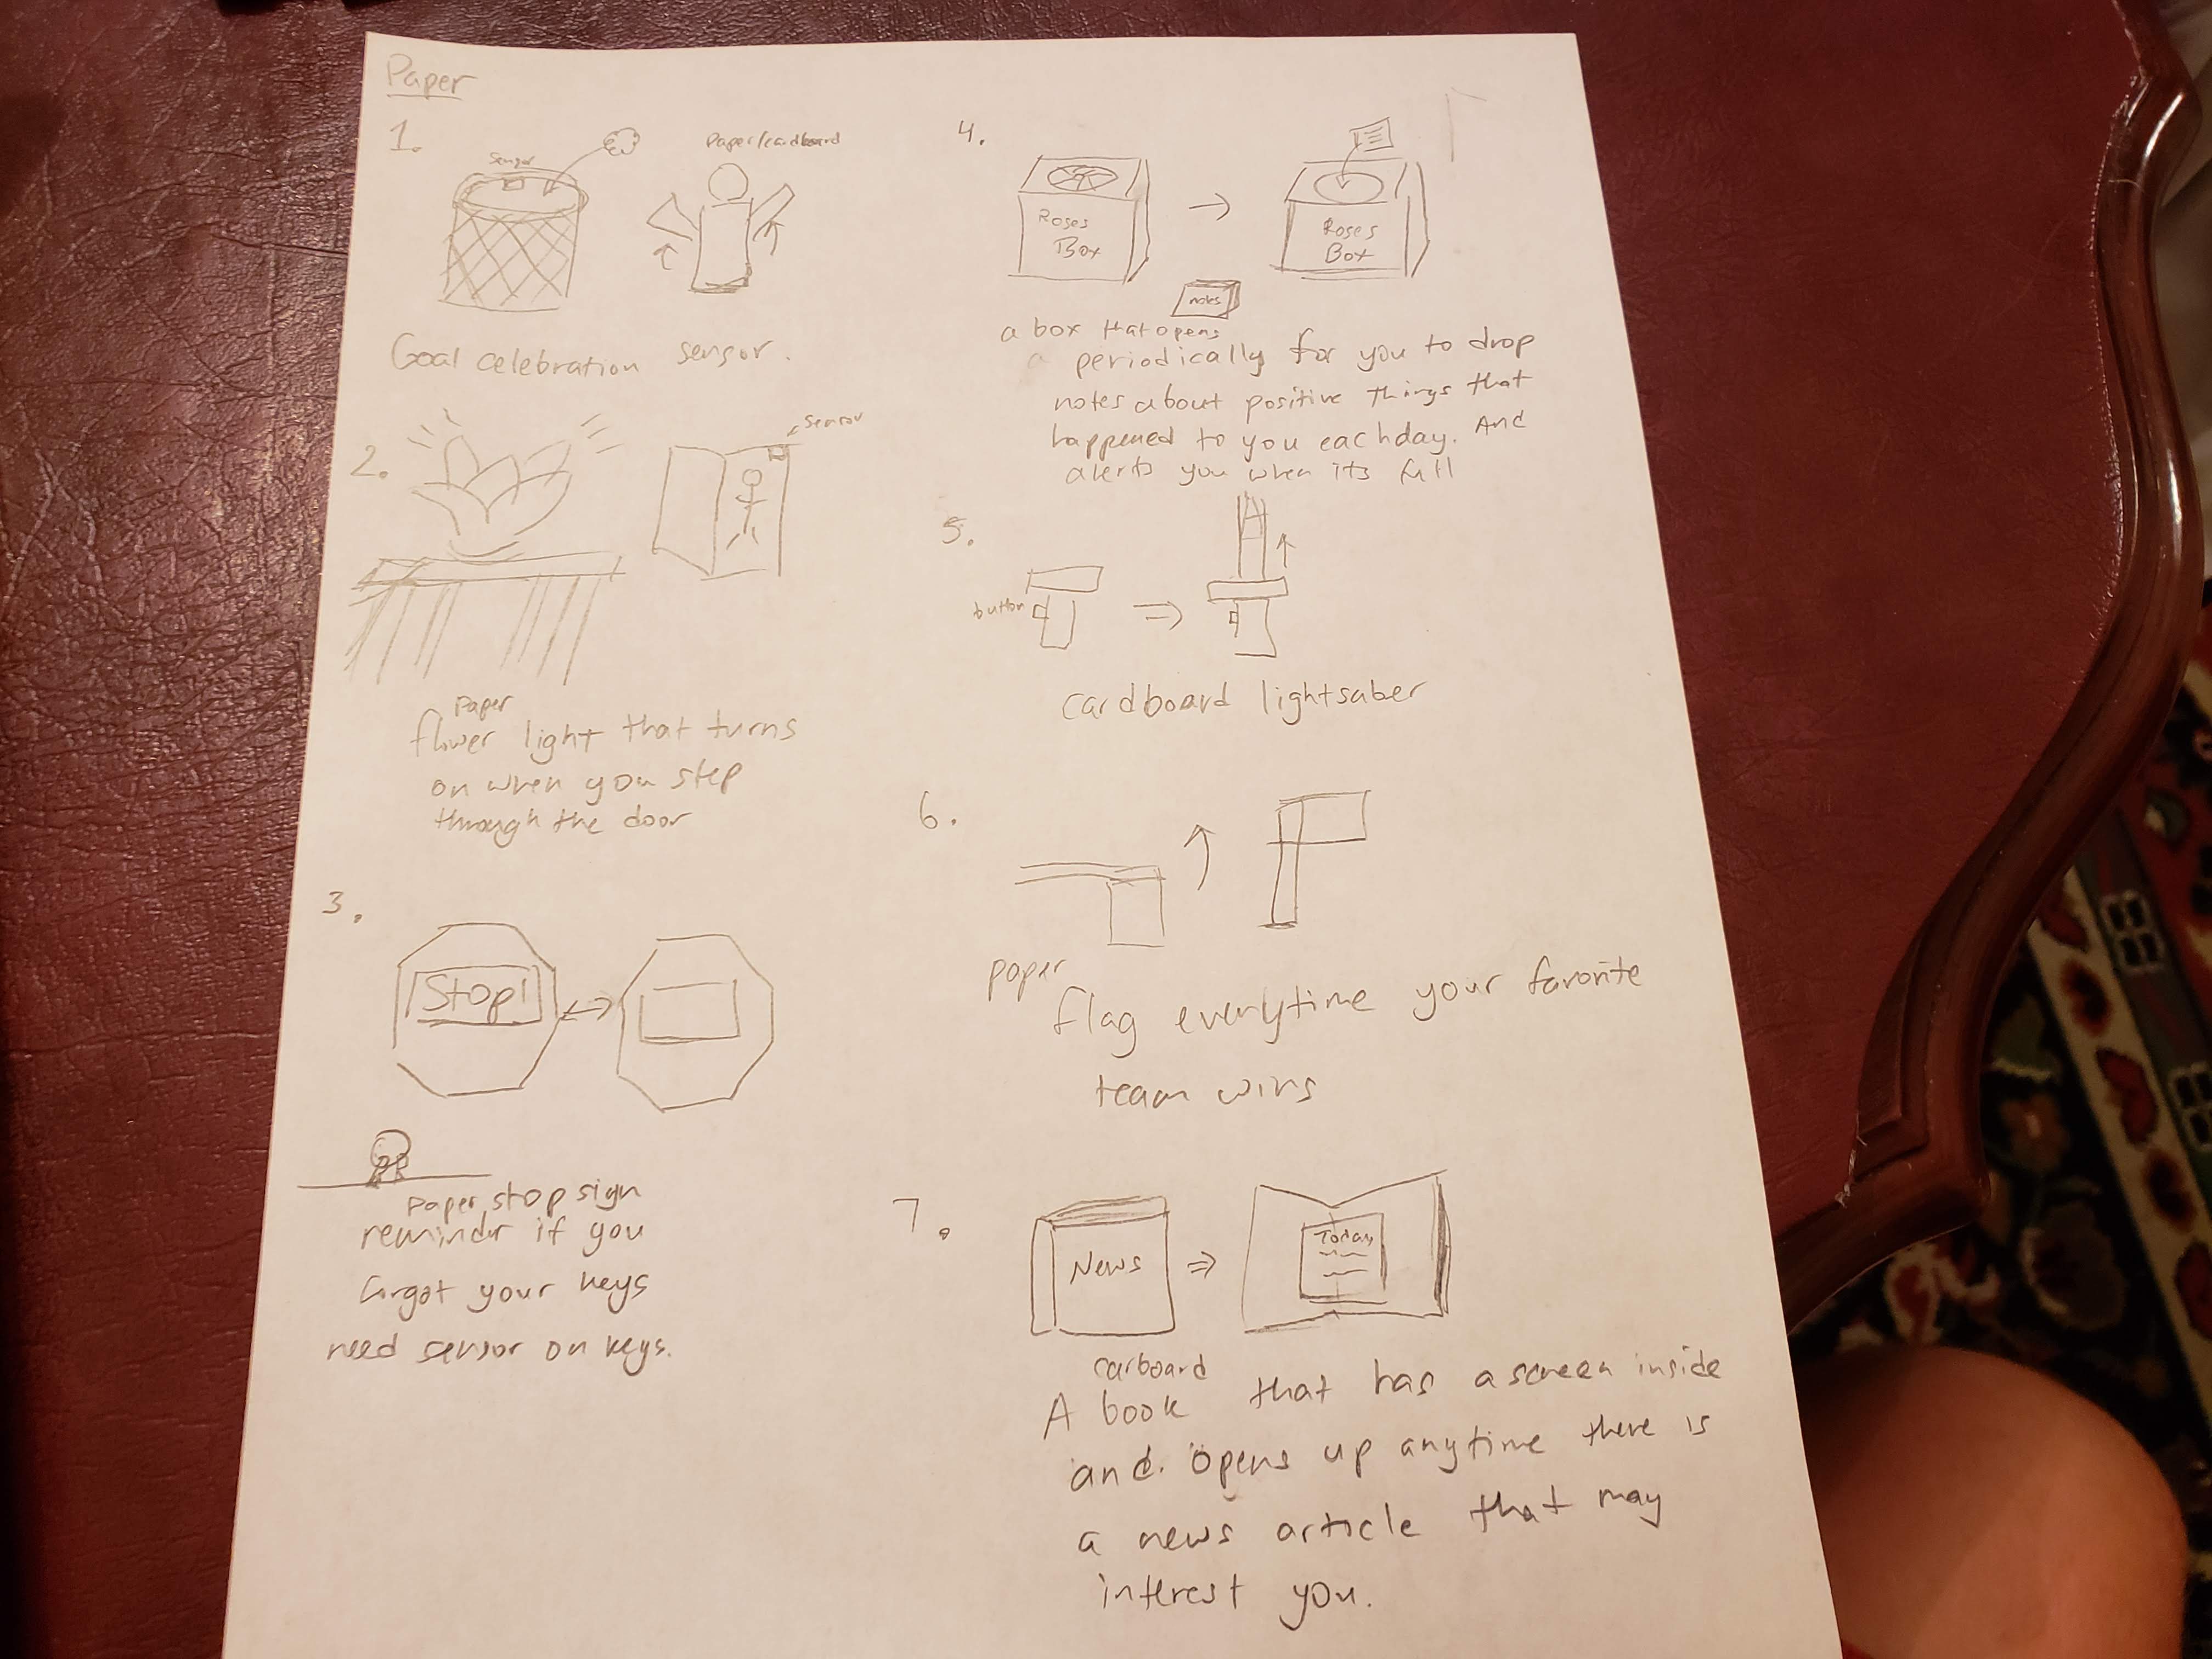 Paper
1.
Sensor
Paper/cardboard
Goal celebration sensor.
2.
sensor
Paper
flower light that turns
on when you step
through the door
3.
Stop!
Paper stop sign
remindr if you
forgot your keys
need sensor on keys.
4.
Roses
Box
Roses
Box
notes
a box that opens
periodically for you to drop
notes about positive things that
happened to you each day. And
alerts you when its full
5.
button
cardboard lightsaber
6.
paper
flag everytime your favorite
team wins
7.
News
Today
carboard
A book that has a screen inside
and. opens up anytime there is
a news article that may
interest you.